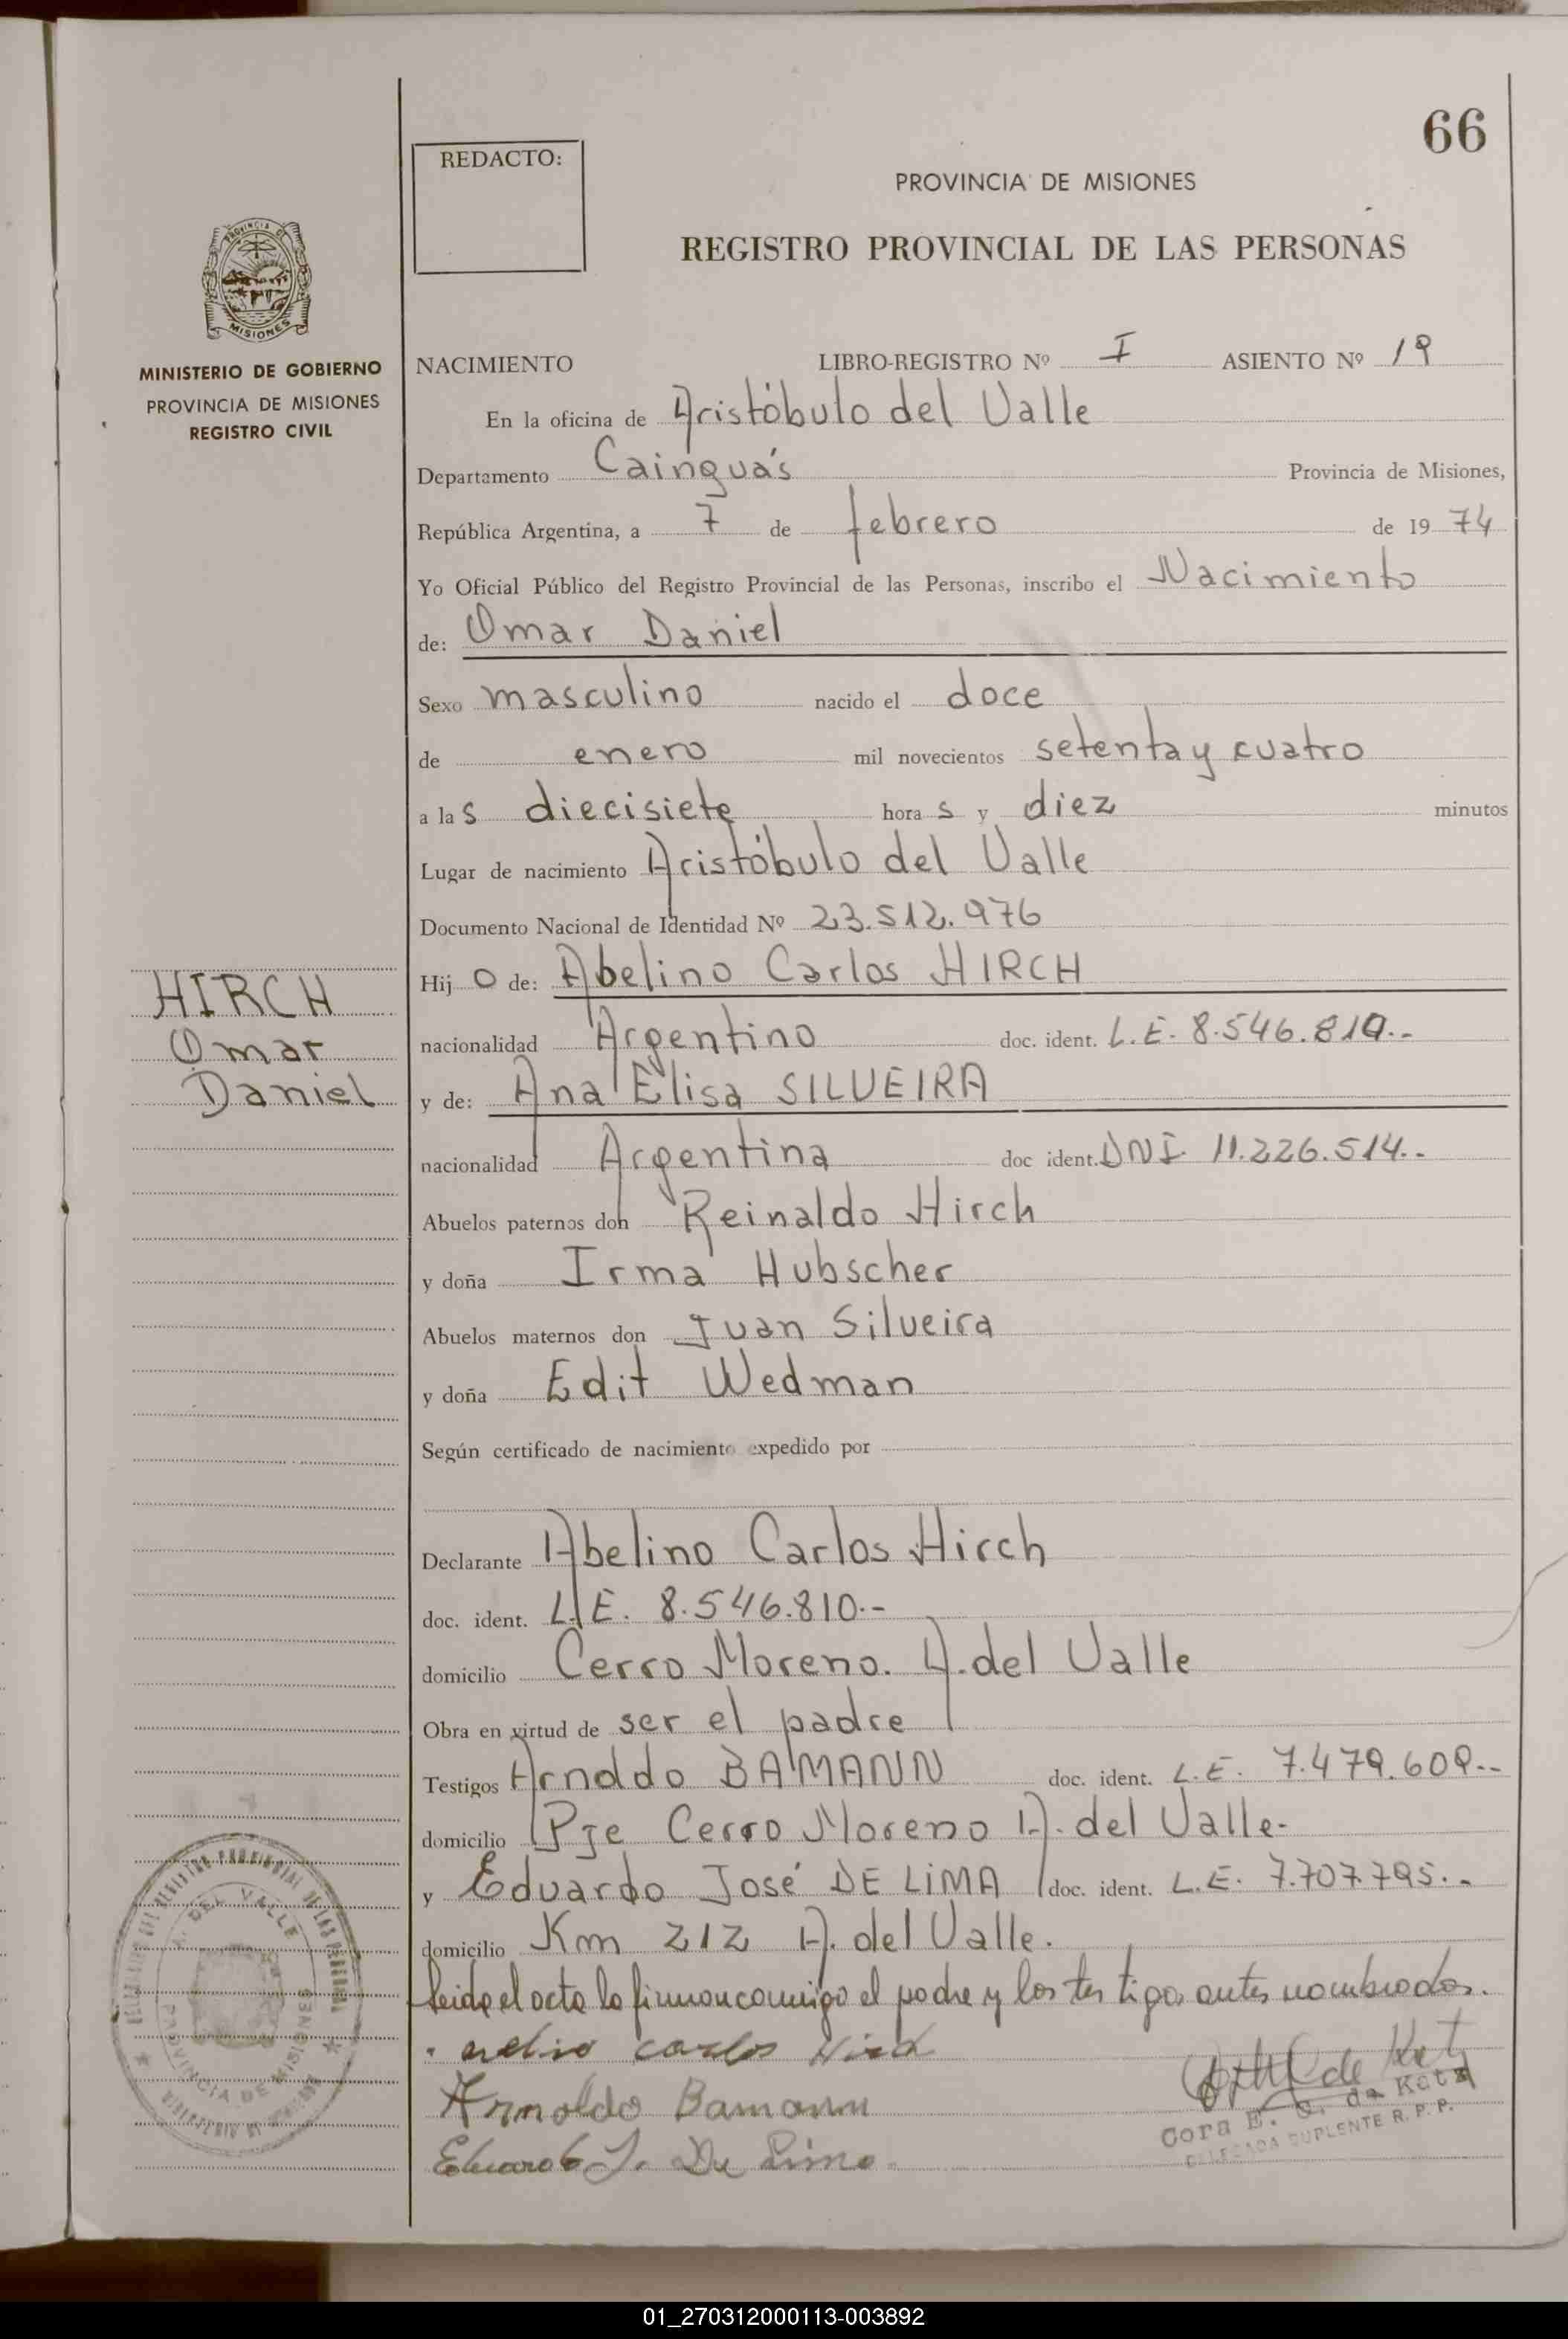 66
REDACTO:
PROVINCIA DE MISIONES
REGISTRO PROVINCIAL DE LAS PERSONAS
PROVINCIA DE
MISIONES
MINISTERIO DE GOBIERNO
PROVINCIA DE MISIONES
REGISTRO CIVIL
NACIMIENTO LIBRO-REGISTRO Nº I ASIENTO Nº 19
En la oficina de Aristóbulo del Valle
Departamento Cainguás Provincia de Misiones,
República Argentina, a 7 de febrero de 19 74
Yo Oficial Público del Registro Provincial de las Personas, inscribo el Nacimiento
de: Omar Daniel
Sexo masculino nacido el doce
de enero mil novecientos setenta y cuatro
a las diecisiete horas y diez minutos
Lugar de nacimiento Aristóbulo del Valle
Documento Nacional de Identidad Nº 23.512.976
Hijo de: Abelino Carlos HIRCH
nacionalidad Argentino doc. ident. L.E. 8.546.810.-
y de: Ana Elisa SILVEIRA
nacionalidad Argentina doc ident. DNI 11.226.514.-
Abuelos paternos don Reinaldo Hirch
y doña Irma Hubscher
Abuelos maternos don Juan Silveira
y doña Edit Wedman
Según certificado de nacimiento expedido por
Declarante Abelino Carlos Hirch
doc. ident. L.E. 8.546.810.-
domicilio Cerro Moreno. A. del Valle
Obra en virtud de ser el padre
Testigos Arnoldo BAMANN doc. ident. L.E. 7.479.609.-
domicilio Pje Cerro Moreno A. del Valle-
y Eduardo José DE LIMA doc. ident. L.E. 7.707.795.-
domicilio Km 212 A. del Valle.
Leida el acta la firman conmigo el padre y los testigos antes nombrados.
Carlos Hirch
Arnoldo Bamann
Eduardo J. De Lima.
Cora E. de Ketz
DELEGADA SUPLENTE R. P. P.
HIRCH
Omar
Daniel
DEL REGISTRO PROVINCIAL DE LAS PERSONAS
A. DEL VALLE
PROVINCIA DE MISIONES
01_270312000113-003892